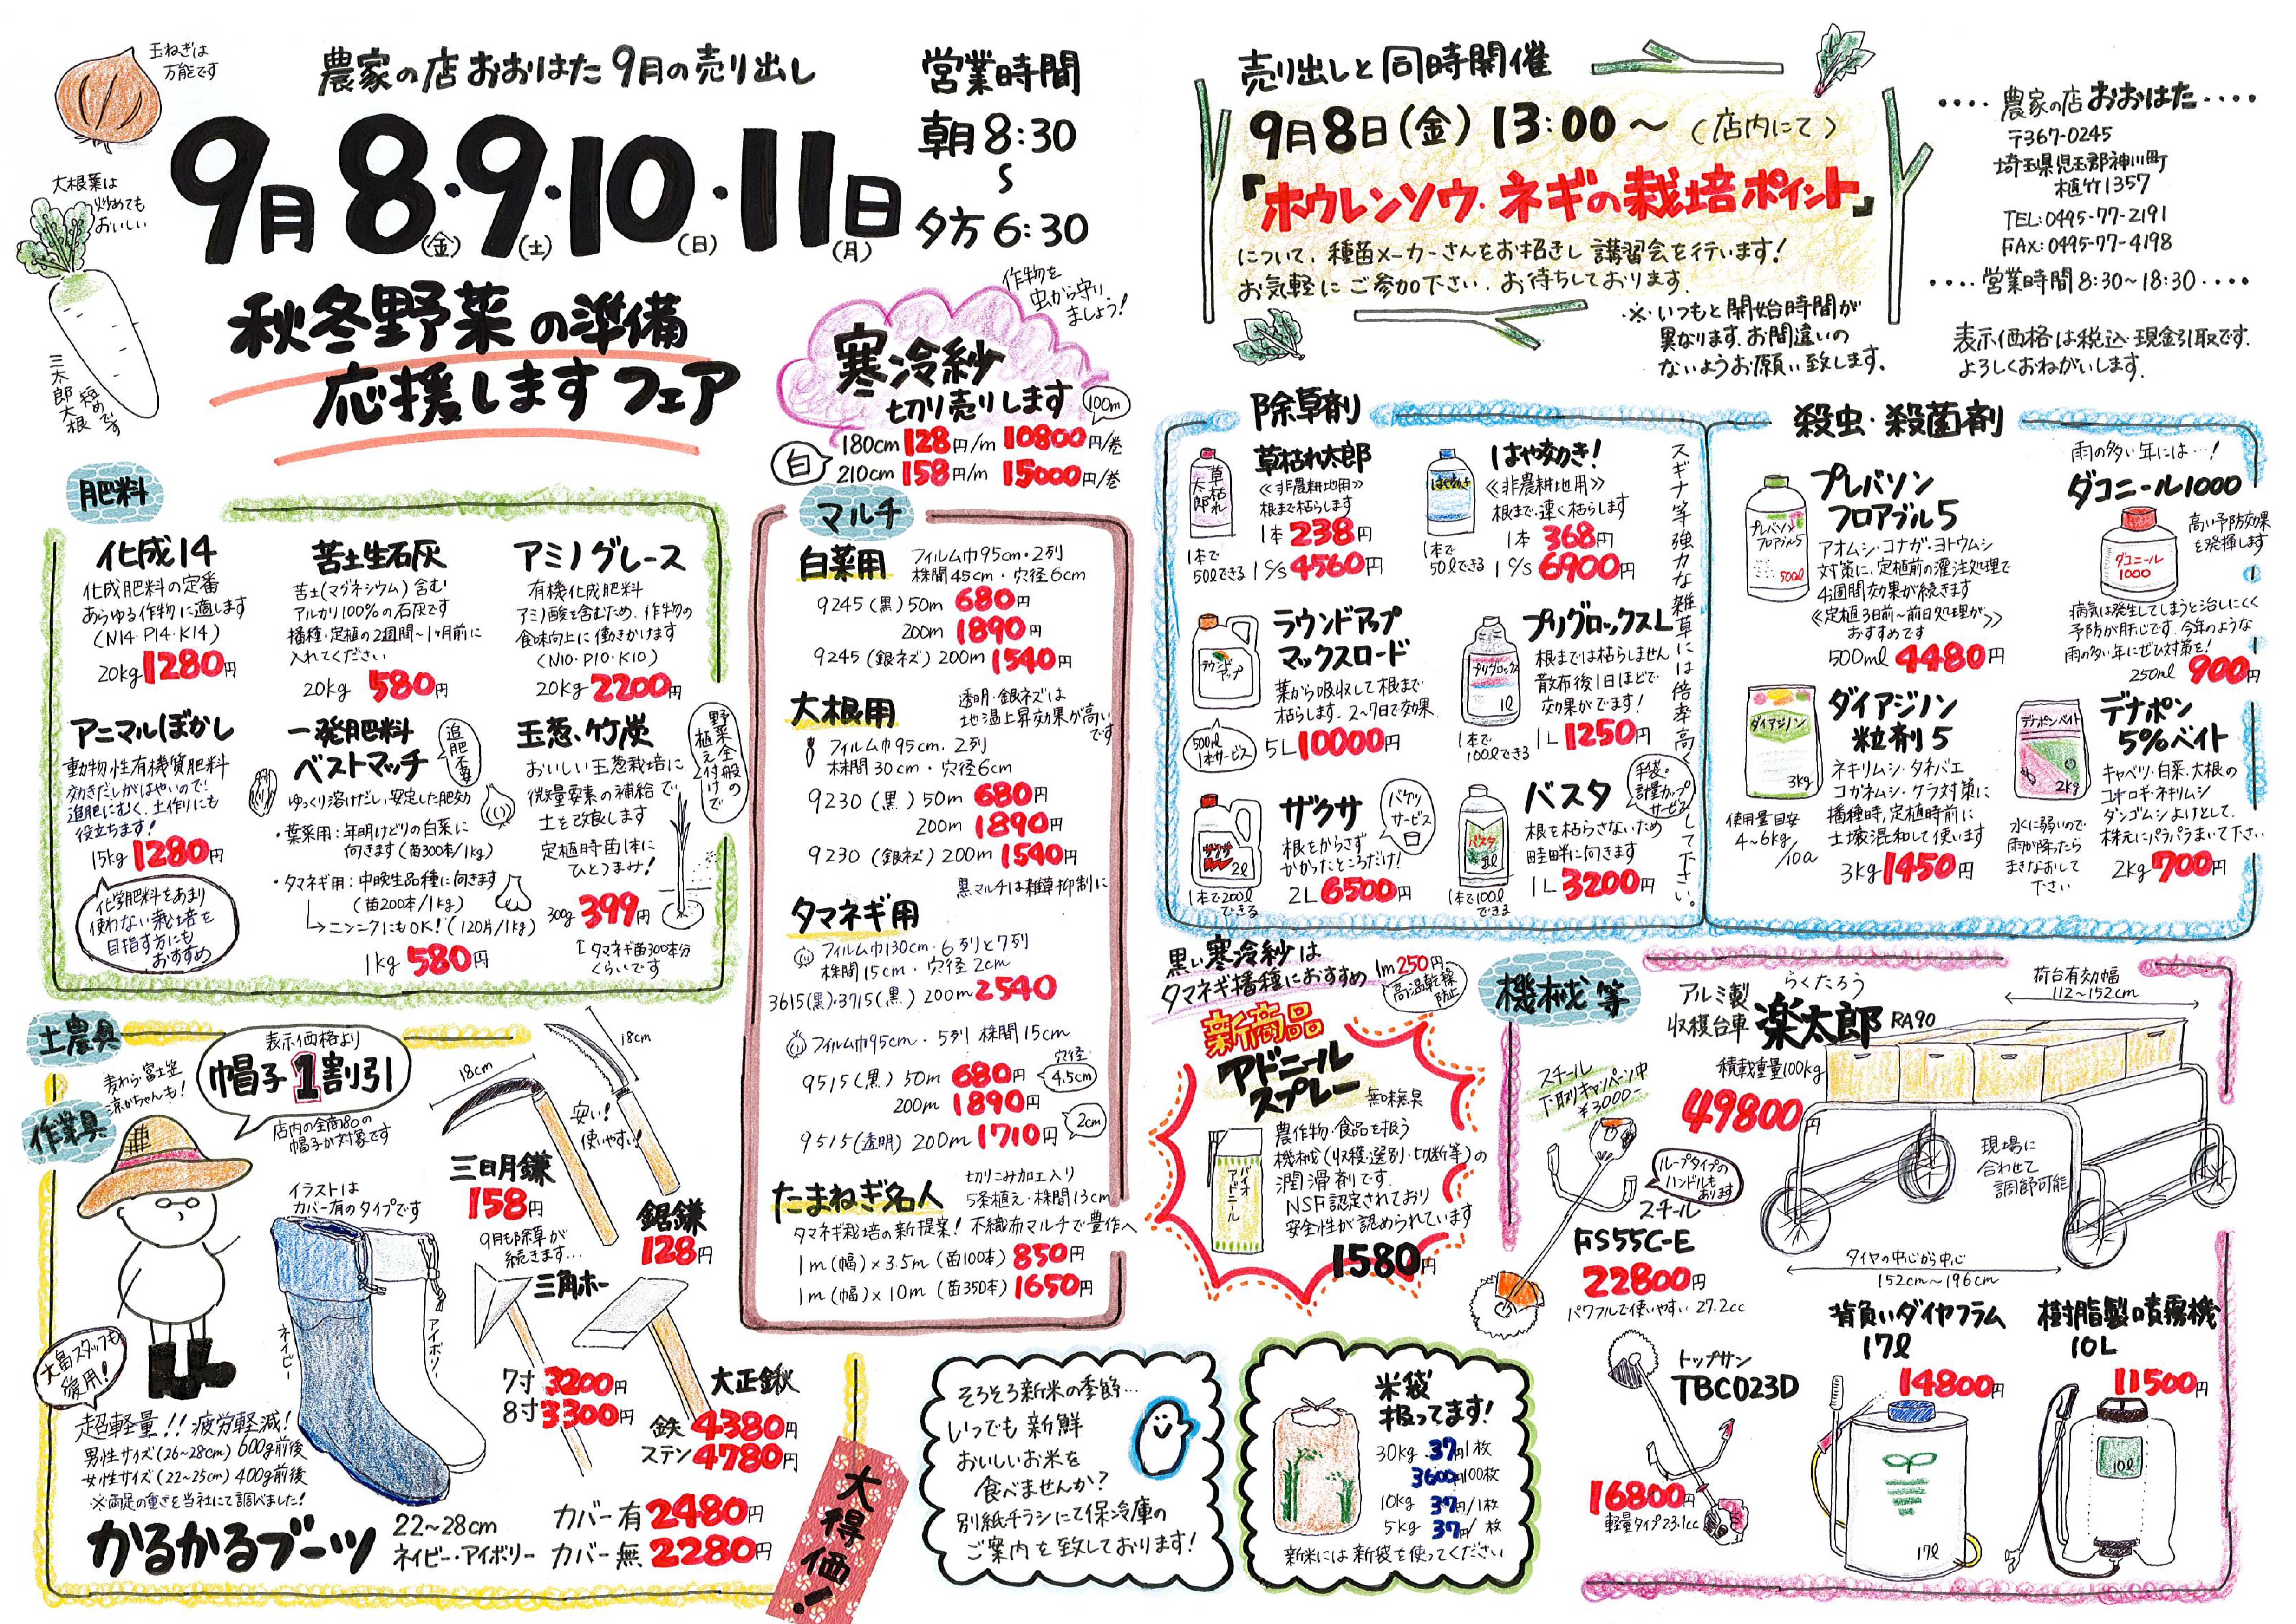 玉ねぎは
万能です
農家の店 おおはた 9月の売り出し
9月8・9・10・11日
(金)(土)(日)(月)
営業時間
朝8:30
〜
夕方6:30
大根葉は
炒めても
おいしい
三太郎大根
短めです
秋冬野菜の準備
応援しますフェア
作物を
虫から守り
ましょう!
寒冷紗
切り売りします
100m
白
180cm 128円/m 10800円/巻
210cm 158円/m 15000円/巻
売り出しと同時開催
9月8日(金) 13:00〜 (店内にて)
「ホウレンソウ・ネギの栽培ポイント」
について、種苗メーカーさんをお招きし 講習会を行います!
お気軽にご参加下さい。お待ちしております。
※いつもと開始時間が
異なります。お間違いの
ないようお願い致します。
・・・・農家の店 おおはた・・・・
〒367-0245
埼玉県児玉郡神川町
植竹1357
TEL:0495-77-2191
FAX:0495-77-4198
・・・・営業時間8:30〜18:30・・・・
表示価格は税込・現金引取です。
よろしくおねがいします。
肥料
化成14
化成肥料の定番
あらゆる作物に適します
(N14・P14・K14)
20kg 1280円
苦土生石灰
苦土(マグネシウム)含む
アルカリ100%の石灰です
播種・定植の2週間〜1ヶ月前に
入れてください
20kg 580円
アミノグレース
有機化成肥料
アミノ酸を含むため、作物の
食味向上に働きかけます
(N10・P10・K10)
20kg 2200円
アニマルぼかし
動物性有機質肥料
効きだしがはやいので
追肥にむく、土作りにも
役立ちます!
15kg 1280円
化学肥料をあまり
使わない栽培を
目指す方にも
おすすめ
一発肥料
ベストマッチ
追肥不要
ゆっくり溶けだし、安定した肥効
・葉菜用:年明けどりの白菜に
向きます(苗300本/1kg)
・タマネギ用:中晩生品種に向きます
(苗200本/1kg)
→ニンニクにもOK!(120片/1kg)
1kg 580円
玉葱、竹炭
野菜全般の
植え付けで
おいしい玉葱栽培に
微量要素の補給で
土を改良します
定植時苗1本に
ひとつまみ!
300g 399円
↑タマネギ苗300本分
くらいです
マルチ
白菜用
フィルム巾95cm・2列
株間45cm・穴径6cm
9245(黒) 50m 680円
200m 1890円
9245(銀ネズ) 200m 1540円
大根用
透明・銀ネズは
地温上昇効果が高い
です
フィルム巾95cm、2列
株間30cm・穴径6cm
9230(黒) 50m 680円
200m 1890円
9230(銀ネズ) 200m 1540円
黒マルチは雑草抑制に
タマネギ用
フィルム巾130cm・6列と7列
株間15cm・穴径2cm
3615(黒)・3715(黒) 200m 2540
フィルム巾95cm・5列 株間15cm
9515(黒) 50m 680円
穴径
4.5cm
200m 1890円
9515(透明) 200m 1710円
2cm
たまねぎ名人
切りこみ加工入り
5条植え・株間13cm
タマネギ栽培の新提案! 不織布マルチで豊作へ
1m(幅)×3.5m(苗100本) 850円
1m(幅)×10m(苗350本) 1650円
除草剤
草枯れ太郎
草枯れ太郎
≪非農耕地用≫
根まで枯らします
1本 238円
1本で
50lできる
1c/s 4560円
はや効き!
はや効き
≪非農耕地用≫
根まで、速く枯らします
1本 368円
1本で
50lできる
1c/s 6900円
スギナ等強力な雑草には倍率高くして下さい。
ラウンドアップ
マックスロード
ラウンドアップ
葉から吸収して根まで
枯らします。2〜7日で効果
500ml
1本サービス
5L 10000円
プリグロックスL
プリグロックス
1l
根までは枯らしません
散布後1日ほどで
効果がでます!
1本で
100lできる
1L 1250円
ザクサ
ザクサ
2l
バケツ
サービス
根をからさず
かかったところだけ!
2L 6500円
1本で200l
できる
バスタ
バスタ
手袋、
計量カップ
サービス
根を枯らさないため
畦畔に向きます
1L 3200円
1本で100l
できる
殺虫・殺菌剤
プレバソン
フロアブル5
プレバソン
フロアブル5
アオムシ・コナガ・ヨトウムシ
対策に、定植前の灌注処理で
4週間効果が続きます
≪定植3日前〜前日処理が≫
おすすめです
500ml 4480円
雨の多い年には…!
ダコニール1000
ダコニール
1000
高い予防効果
を発揮します
病気は発生してしまうと治しにくく
予防が肝心です。今年のような
雨の多い年にぜひ対策を!
250ml 900円
ダイアジノン
粒剤5
ダイアジノン
3kg
ネキリムシ・タネバエ
コガネムシ・ケラ対策に
播種時、定植時前に
土壌混和して使います
使用量目安
4〜6kg
/10a
3kg 1450円
デナポン
5%ベイト
デナポンベイト
2kg
キャベツ・白菜・大根の
コオロギ・ネキリムシ
ダンゴムシよけとして、
株元にパラパラまいて下さい
水に弱いので
雨が降ったら
まきなおして
下さい
2kg 700円
黒い寒冷紗は
タマネギ播種におすすめ
1m250円
高温乾燥
防止
新商品
アドニール
スプレー
無味無臭
農作物・食品を扱う
機械(収穫・選別・切断等)の
潤滑剤です
NSF認定されており
安全性が認められています
1580円
機械等
アルミ製
収穫台車
らくたろう
楽太郎 RA90
積載重量100kg
49800円
荷台有効幅
112〜152cm
現場に
合わせて
調節可能
タイヤの中心から中心
152cm〜196cm
スチール
下取りキャンペーン中
¥3000
ループタイプの
ハンドルも
あります
スチール
FS55C-E
22800円
パワフルで使いやすい 27.2cc
トップサン
TBC023D
16800円
軽量タイプ23.1cc
背負いダイヤフラム
17l
14800円
17l
樹脂製噴霧機
10L
11500円
10l
土農具
作業具
麦わら・富士笠
涼かちゃんも!
表示価格より
帽子1割引
店内の全商品の
帽子が対象です
18cm
18cm
安い!
使いやすい!
三日月鎌
158円
9月も除草が
続きます…
鋸鎌
128円
三角ホー
7寸 3200円
8寸 3300円
大正鍬
鉄 4380円
ステン 4780円
イラストは
カバー有のタイプです
ネイビー
アイボリー
大畠スタッフも
愛用!
超軽量!! 疲労軽減!
男性サイズ(26〜28cm) 600g前後
女性サイズ(22〜25cm) 400g前後
※両足の重さを当社にて調べました!
かるかるブーツ
22〜28cm
ネイビー・アイボリー
カバー有 2480円
カバー無 2280円
大得価!
そろそろ新米の季節…
いつでも新鮮
おいしいお米を
食べませんか?
別紙チラシにて保冷庫の
ご案内を致しております!
米袋
扱ってます!
30kg 37円/1枚
3600円100枚
10kg 37円/1枚
5kg 37円/枚
新米には新袋を使ってください